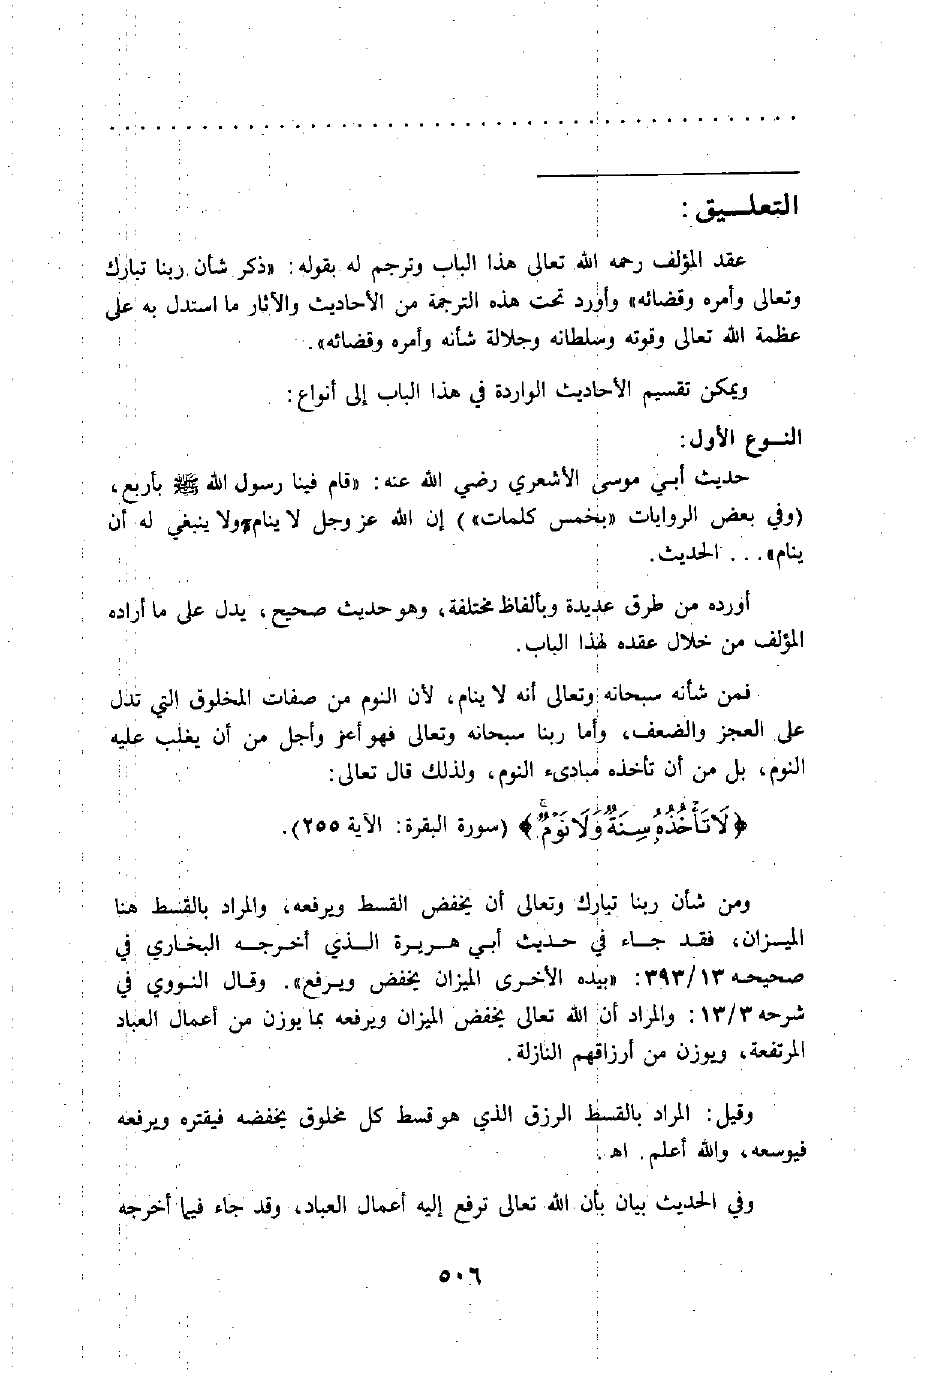 التعلــيق :
عقد المؤلف رحمه الله تعالى هذا الباب وترجم له بقوله : «ذكر شأن ربنا تبارك
وتعالى وأمره وقضائه» وأورد تحت هذه الترجمة من الأحاديث والآثار ما استدل به على
عظمة الله تعالى وقوته وسلطانه وجلالة شأنه وأمره وقضائه» .
ويمكن تقسيم الأحاديث الواردة في هذا الباب إلى أنواع :
النــوع الأول :
حديث أبي موسى الأشعري رضي الله عنه : «قام فينا رسول الله ﷺ بأربع ،
(وفي بعض الروايات «بخمس كلمات») إن الله عز وجل لا ينام ولا ينبغي له أن
ينام» . . . الحديث .
أورده من طرق عديدة وبألفاظ مختلفة ، وهو حديث صحيح ، يدل على ما أراده
المؤلف من خلال عقده لهذا الباب .
فمن شأنه سبحانه وتعالى أنه لا ينام ، لأن النوم من صفات المخلوق التي تدل
على العجز والضعف ، وأما ربنا سبحانه وتعالى فهو أعز وأجل من أن يغلب عليه
النوم ، بل من أن تأخذه مبادىء النوم ، ولذلك قال تعالى :
﴿لَا تَأْخُذُهُ سِنَةٌ وَلَا نَوْمٌ﴾ (سورة البقرة : الآية ٢٥٥) .
ومن شأن ربنا تبارك وتعالى أن يخفض القسط ويرفعه ، والمراد بالقسط هنا
الميـزان ، فقـد جـاء في حـديث أبي هـريرة الـذي أخـرجـه البخـاري في
صحيحـه ١٣/٣٩٣ : «بيده الأخـرى الميزان يخفض ويـرفع» . وقـال النـووي في
شرحه ١٣/٣ : والمراد أن الله تعالى يخفض الميزان ويرفعه بما يوزن من أعمال العباد
المرتفعة ، ويوزن من أرزاقهم النازلة .
وقيل : المراد بالقسط الرزق الذي هو قسط كل مخلوق يخفضه فيقتره ويرفعه
فيوسعه ، والله أعلم . اهـ .
وفي الحديث بيان بأن الله تعالى ترفع إليه أعمال العباد ، وقد جاء فيما أخرجه
٥٠٦